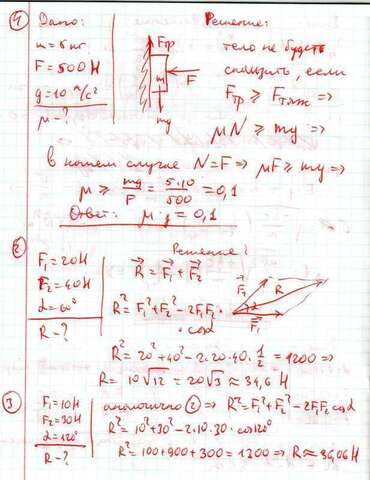 ④ Дано:
Решение:
m = 5 кг
F = 500 Н
g = 10 м/с²
μ - ?
Fтр
m
F
mg
тело не будет
скользить, если
Fтр ≥ Fтяж ⇒
μN ≥ mg ⇒
в нашем случае N = F ⇒ μF ≥ mg ⇒
μ ≥ mg/F = 5·10/500 = 0,1
Ответ: μ ≥ 0,1
② Решение:
F₁ = 20 Н
F₂ = 40 Н
α = 60°
R - ?
R⃗ = F⃗₁ + F⃗₂
F⃗₂
R
α
F⃗₁
R² = F₁² + F₂² - 2F₁F₂ ·
· cosα
R² = 20² + 40² - 2·20·40·1/2 = 1200 ⇒
R = 10√12 = 20√3 ≈ 34,6 Н
③ F₁ = 10 Н
F₂ = 30 Н
α = 120°
R - ?
аналогично ② ⇒ R² = F₁² + F₂² - 2F₁F₂ cosα
R² = 10² + 30² - 2·10·30·cos120°
R² = 100 + 900 + 300 = 1300 ⇒ R ≈ 36,06 Н